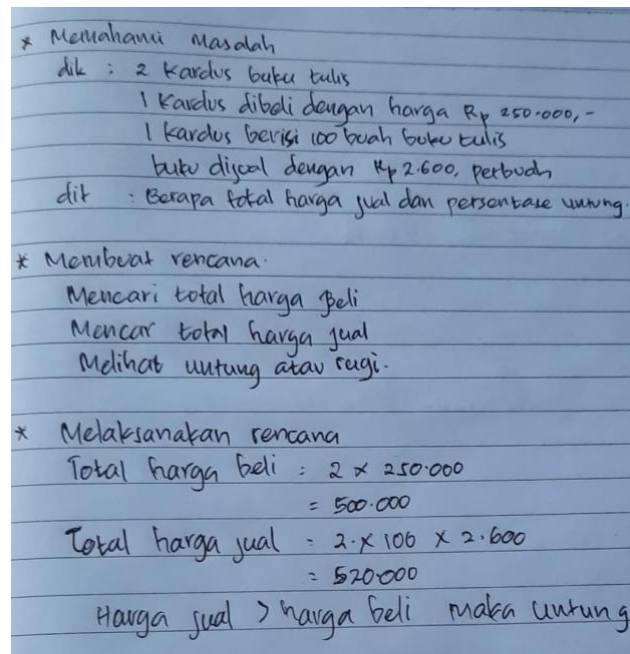 * Memahami Masalah
dik : 2 Kardus buku tulis
1 Kardus dibeli dengan harga Rp 250.000,-
1 Kardus berisi 100 buah buku tulis
buku dijual dengan Rp 2.600, perbuah
dit : Berapa total harga jual dan persentase untung.
* Membuat rencana.
Mencari total harga Beli
Mencar total harga jual
Melihat untung atau rugi.
* Melaksanakan rencana
Total harga beli : 2 x 250.000
= 500.000
Total harga jual : 2 x 100 x 2.600
= 520.000
Harga jual > harga beli maka untung